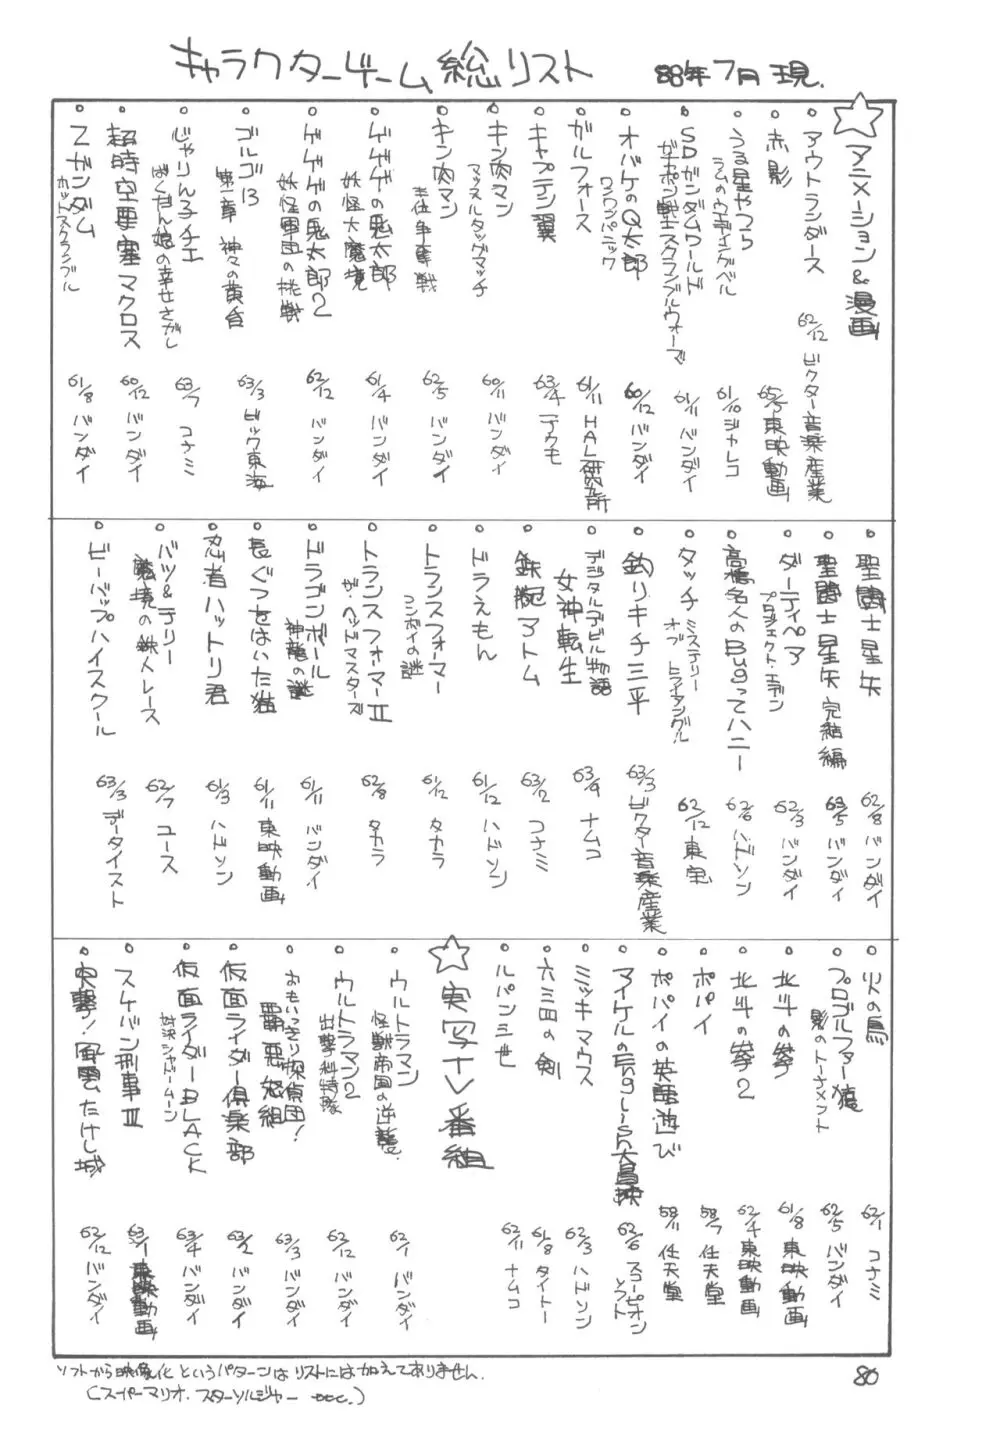 キャラクターゲーム総リスト 88年7月現.
☆アニメーション&漫画
アウトランダース 62/12 ビクター音楽産業
赤影 63/5 東映動画
うる星やつら
ラムのウェディングベル 61/10 ジャレコ
SDガンダムワールド
ガチャポン戦士スクランブルウォーズ 61/11 バンダイ
オバケのQ太郎
ワンワンパニック 60/12 バンダイ
ガルフォース 61/11 HAL研究所
キャプテン翼 63/4 テクモ
キン肉マン
マッスルタッグマッチ 60/11 バンダイ
キン肉マン
王位争奪戦 62/5 バンダイ
ゲゲゲの鬼太郎
妖怪大魔境 61/4 バンダイ
ゲゲゲの鬼太郎2
妖怪軍団の挑戦 62/12 バンダイ
ゴルゴ13
第一章 神々の黄昏 63/3 ビック東海
じゃりん子チエ
ばくだん娘の幸せさがし 63/7 コナミ
超時空要塞マクロス 60/12 バンダイ
Zガンダム
ホットスクランブル 61/8 バンダイ
聖闘士星矢 62/8 バンダイ
聖闘士星矢 完結編 63/5 バンダイ
ダーティペア
プロジェクト・エデン 62/3 バンダイ
高橋名人のBugってハニー 62/6 ハドソン
タッチ ミステリー
オブ トライアングル 62/12 東宝
釣りキチ三平 63/3 ビクター音楽産業
デジタルデビル物語
女神転生 63/9 ナムコ
鉄腕アトム 63/2 コナミ
ドラえもん 61/12 ハドソン
トランスフォーマー
コンボイの謎 61/12 タカラ
トランスフォーマーII
ザ・ヘッドマスターズ 62/8 タカラ
ドラゴンボール
神龍の謎 61/11 バンダイ
長ぐつをはいた猫 61/11 東映動画
忍者ハットリ君 61/3 ハドソン
バツ&テリー
魔境の鉄人レース 62/7 ユース
ビーバップハイスクール 63/3 データイスト
火の鳥 62/1 コナミ
プロゴルファー猿
影のトーナメント 62/5 バンダイ
北斗の拳 61/8 東映動画
北斗の拳2 62/4 東映動画
ポパイ 58/7 任天堂
ポパイの英語遊び 58/11 任天堂
マイケルのEnglish大冒険 62/6 スコーピオンソフト
ミッキマウス 62/3 ハドソン
六三四の剣 61/8 タイトー
ルパン三世 62/11 ナムコ
☆実写TV番組
ウルトラマン
怪獣帝国の逆襲. 62/1 バンダイ
ウルトラマン2
出撃科特隊 62/12 バンダイ
おもいっきり探偵団!
覇悪怒組 63/3 バンダイ
仮面ライダー倶楽部 63/2 バンダイ
仮面ライダーBLACK
対決シャドームーン 63/4 バンダイ
スケバン刑事III 63/1 東映動画
突撃!風雲たけし城 62/12 バンダイ
ソフトから映像化というパターンはリストには加えてありません.
(スーパーマリオ. スターソルジャー etc.)
80